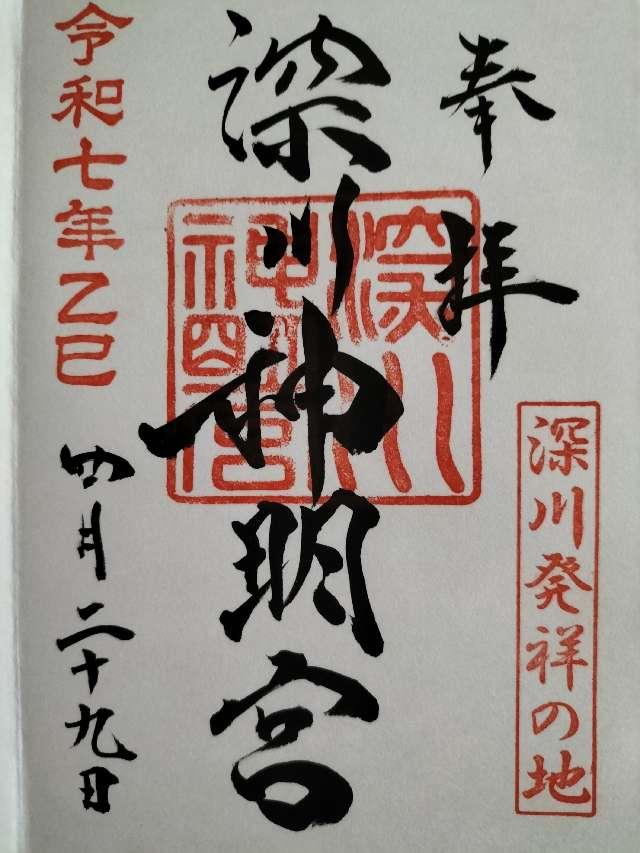 奉拝
深川発祥の地
深川神明宮
深川神明宮
令和七年乙巳
四月二十九日